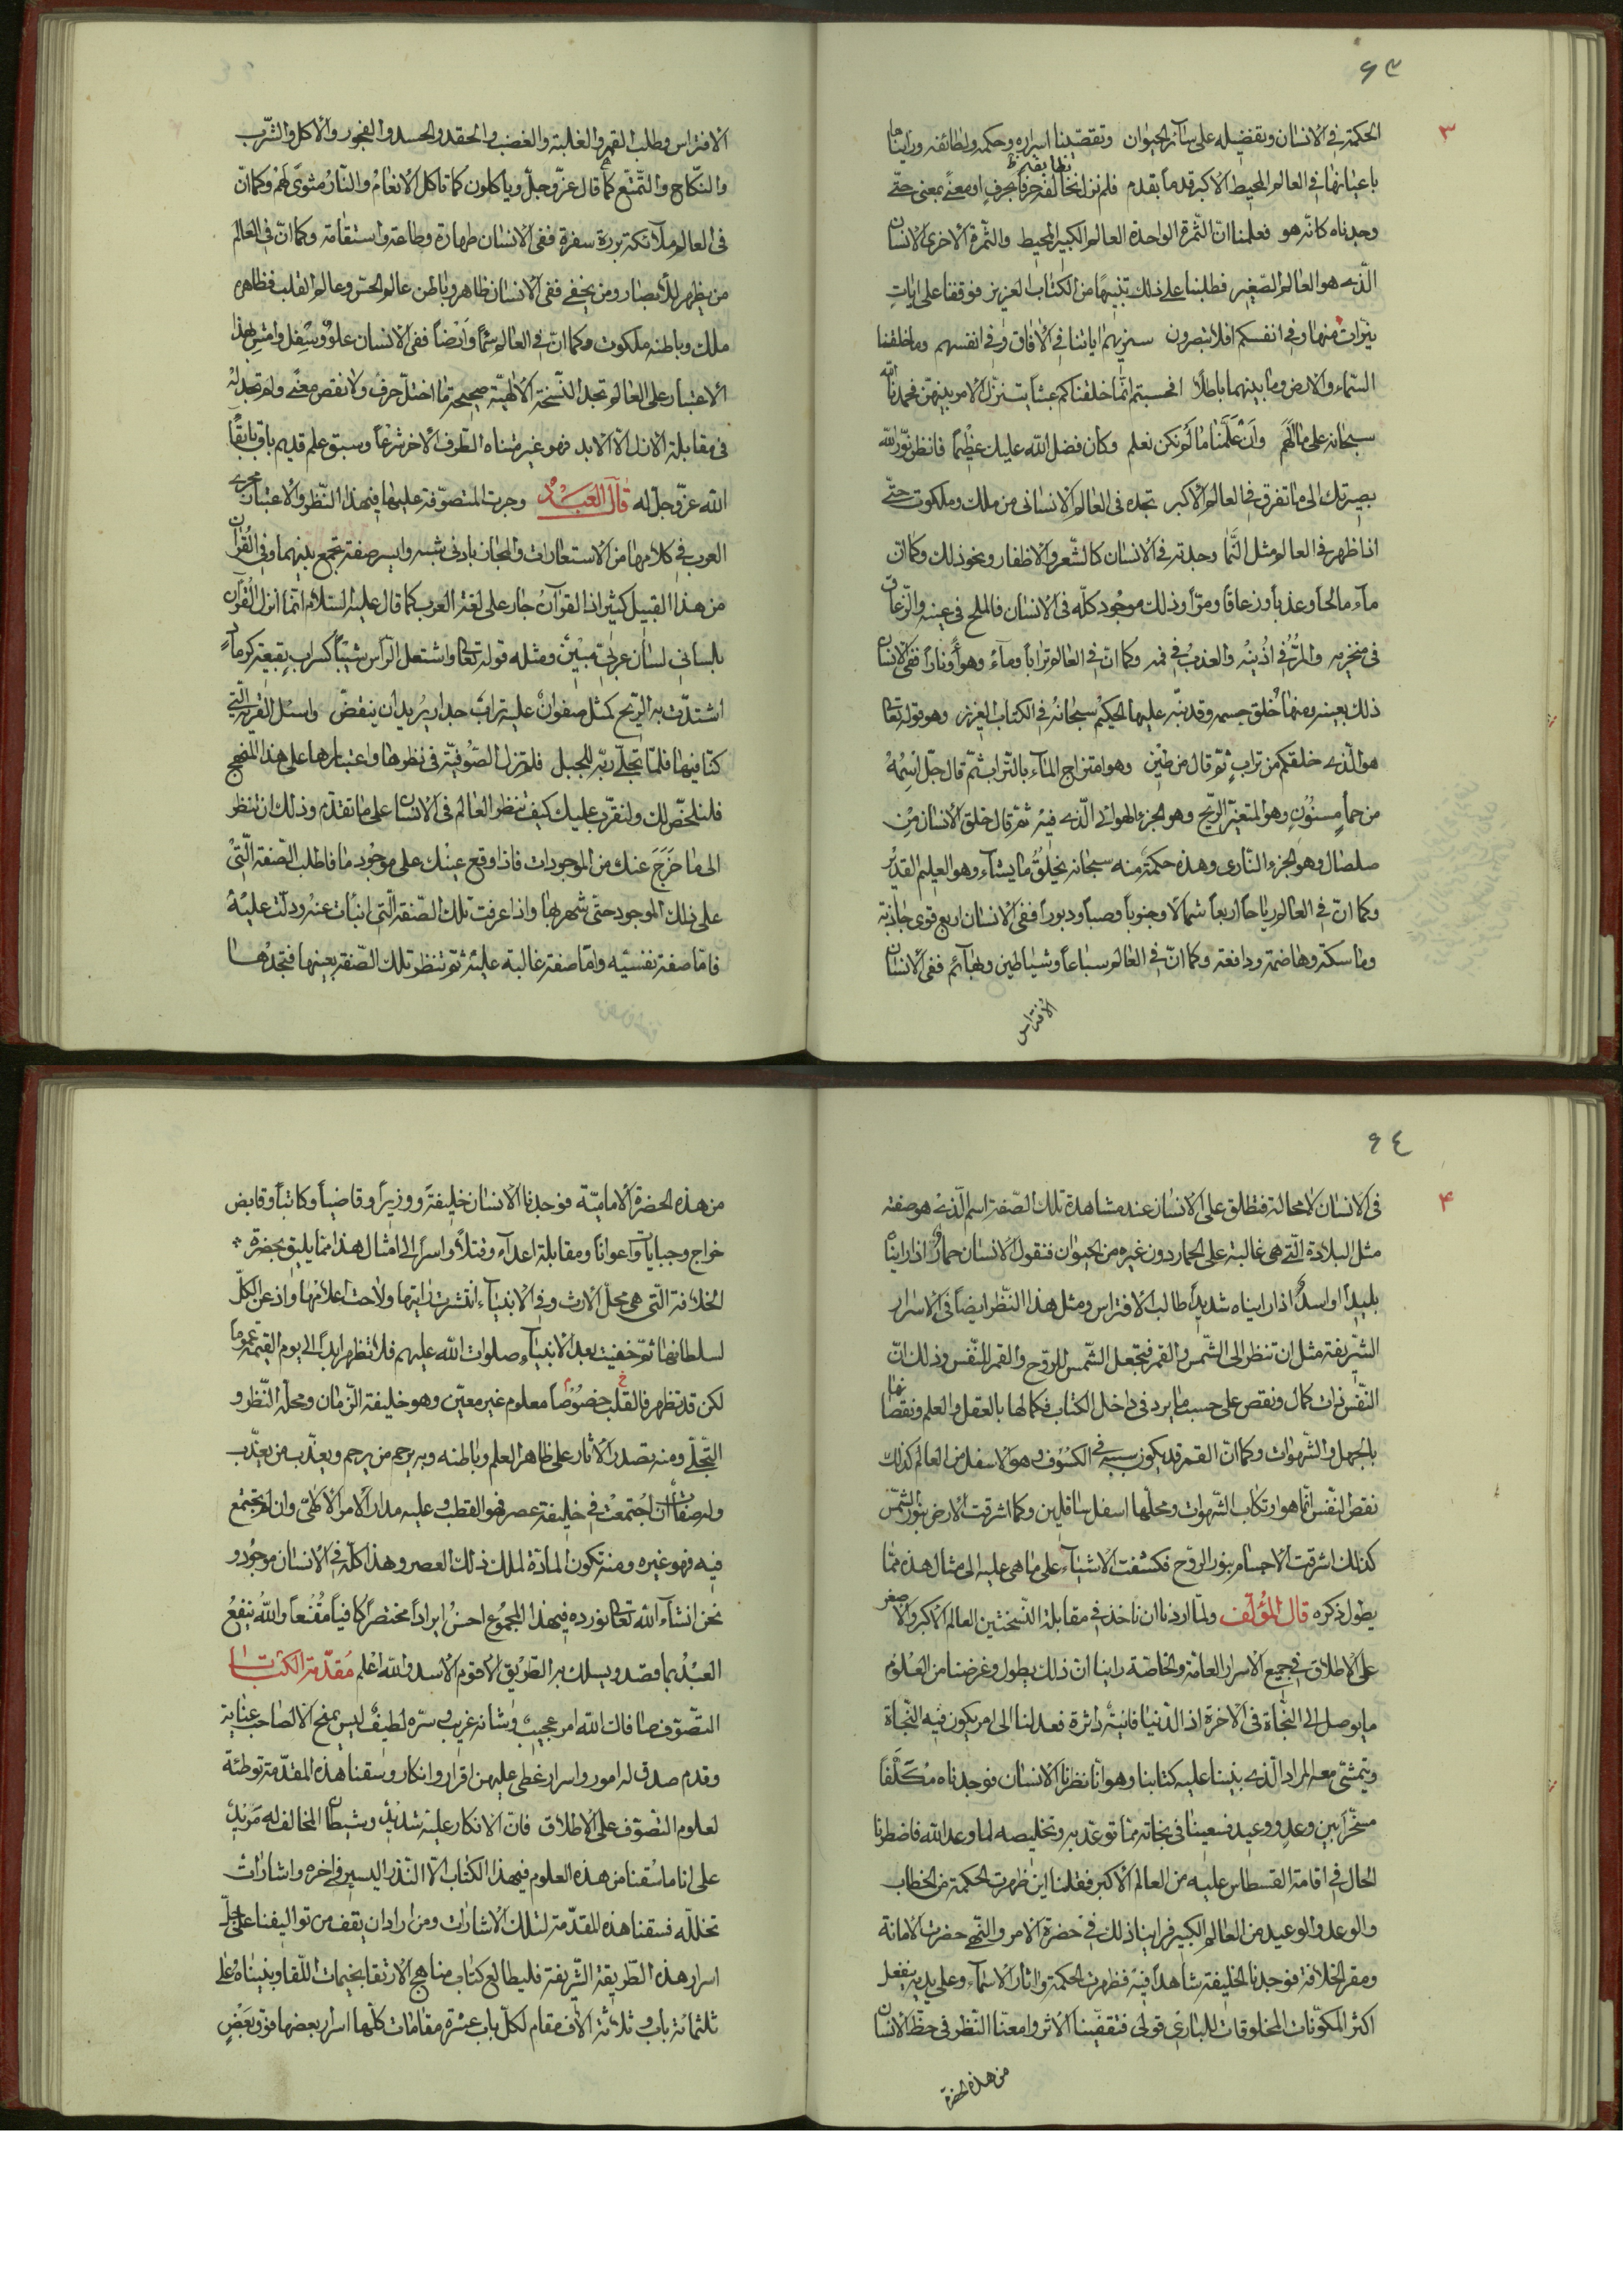 ٦٣
٣
الحكمة في الانسان وتفضيله على سائر الحيوان وتقصّينا اسراره وحكمه ولطائفه وراينا ما
باعيانها في العالم المحيط الاكبر قدما بقدم فلم نزل نخالفه حرفا بحرف او معنًى بمعنى حتّى
نقابله
وجدناه كانّه هو فعلمنا انّ الثّمرة الواحدة العالم الكبير المحيط والثمرة الاخرى الانسان
الّذى هو العالم الصّغير فطلبنا على ذلك تنبيهًا من الكتاب العزيز فوقفنا على ايات
نيّرات منها وفي انفسكم افلا تبصرون سنريهم اياتنا في الآفاق وفي انفسهم وما خلقنا
السّماء والارض وما بينهما باطلًا افحسبتم انّما خلقناكم عبثا يتنزّل الامر بينهنّ فحمدنا الله
سبحانه على ما الهم وان علّمنا ما لم نكن نعلم وكان فضل الله عليك عظيما فانظر نوّر الله
بصيرتك الى ما تفرق في العالم الاكبر تجده فى العالم الانسانى من ملك وملكوت حتّى
اذا ظهر في العالم مثل النّما وجدته في الانسان كالشّعر والاظفار ونحو ذلك وكما انّ
مآء مالحا وعذبا وزعاقا ومرّا وذلك موجود كلّه في الانسان فالملح في عينيه والزّعاق
في منخريه والمرّ في اذنيه والعذب في فمه وكما انّ في العالم ترابا ومآء وهوآء ونارا ففى الانسان
ذلك بعينه ومنها خلق جسمه وقد نبّه عليها الحكيم سبحانه في الكتاب العزيز وهو قوله تعالى
هو الّذى خلقكم من تراب ثمّ قال من طين وهو امتزاج المآء بالتّراب ثمّ قال جلّ اسمه
من حمأ مسنون وهو المتغيّر الرّيح وهو الجزء الهوائى الّذى فيه ثمّ قال خلق الانسان من
صلصال وهو الجزء النّارى وهذه حكمة منه سبحانه يخلق ما يشآء وهو العليم القدير
وكما انّ في العالم رياحا اربعا شمالا وجنوبا وصبا ودبورا ففى الانسان اربع قوى جاذبة
وماسكة وهاضمة ودافعة وكما انّ في العالم سباعا وشياطين وبهآئم ففى الانسان
الافتراس
الافتراس وطلب القهر والغلبة والغضب والحقد والحسد والفجور والاكل والشّرب
والنّكاح والتّمتّع كما قال عزّ وجلّ وياكلون كما تاكل الانعام والنّار مثوى لهم وكما انّ
فى العالم ملآئكة بررة سفرة ففى الانسان طهارة وطاعة واستقامة وكما انّ في العالم
من يظهر للابصار ومن يخفى ففى الانسان ظاهر وباطن عالم الحسّ وعالم القلب فظاهره
ملك وباطنه ملكوت وكما انّ في العالم سمآء وارضا ففى الانسان علو وسفل وامش بهذا
الاعتبار على العالم تجد النّسخة الالهيّة صحيحة ما اختلّ حرف ولا نقص معنى ولم تجد له
فى مقابلة الازل الا الابد فهو غير متناه الطّرف الاخر شرعا وسبق علم قديم باق بابقآء
الله عزّ وجلّ له قال العبد وجرت المتصوّفة عليها في هذا النّظر والاعتبار مجرى
العرب في كلامها من الاستعارات والمجاز بادنى شبه وايسر صفة تجمع بينهما وفي القران
من هذا القبيل كثير اذ القرآن جار على لغة العرب كما قال عليه السّلام انّما انزل القرآن
بلسانى لسان عربىّ مبين ومثله قوله تعالى واشتعل الرّأس شيبا كسراب بقيعة كرماد
اشتدّت به الرّيح كمثل صفوان عليه تراب جدارا يريد ان ينقضّ واسئل القرية الّتى
كنّا فيها فلمّا تجلّى ربّه للجبل فلم تزل الصّوفيّة فى نظرها واعتبارها على هذا المنهج
فلنلخّص لك ولنقرّب عليك كيف تنظر العالم فى الانسان على ما تقدّم وذلك ان تنظر
الى ما خرج عنك من الموجودات فاذا وقع عينك على موجود ما فاطلب الصّفة الّتى
على ذلك الموجود حتى شهر بها واذا عرفت تلك الصّفة الّتى انبأت عنه ودلّت عليه
فامّا صفة نفسيّه وامّا صفة غالبة عليه ثمّ تنظر تلك الصّفة بعينها فتجدها
٦٤
٤
فى الانسان لا محالة فتطلق على الانسان عند مشاهدة تلك الصّفة اسم الّذى هو صفته
مثل البلادة الّتى هى غالبة على الحمار دون غيره من الحيوان فنقول الانسان حمار اذا رايناه
بليدا او اسد اذا رايناه شديدا طالب الافتراس ومثل هذا النّظر ايضا فى الاسرار
الشّريفة مثل ان تنظر الى الشّمس والقمر فتجعل الشّمس للرّوح والقمر للنّفس وذلك انّ
النّفس ذات كمال ونقص على حسب ما يرد فى داخل الكتاب فكمالها بالعقل والعلم ونقصانها
بالجهل والشّهوات وكما انّ القمر قد يكون سببه في الكسوف وهو الاسفل من العالم كذلك
نقص النّفس انّما هو ارتكاب الشّهوات ومحلّها اسفل سافلين وكما اشرقت الارض بنور الشّمس
كذلك اشرقت الاجسام بنور الرّوح فكشفت الاشيآء على ما هى عليه الى مثال هذه ممّا
يطول ذكره قال المؤلّف ولمّا اردنا ان ناخذ في مقابلة النّسختين العالم الاكبر والاصغر
على الاطلاق في جميع الاسرار العامّة والخاصّة راينا انّ ذلك يطول وغرضنا من العلوم
ما يوصل الى النّجاة فى الاخرة اذ الدّنيا فانية داثرة فعدلنا الى امر يكون فيه النّجاة
ويتمشّى معه المراد الّذى بنينا عليه كتابنا وهو انّا نظرنا الانسان فوجدناه مكلّفا
مسخّرا بين وعد ووعيد فسعينا فى نجاته ممّا توعّد به وتخليصه لما وعد الله فاضطرنا
الحال في اقامة القسطاس عليه من العالم الاكبر فقلنا اين ظهرت الحكمة من الخطاب
والوعد والوعيد من العالم الكبير فراينا ذلك في حضرة الامر والنّهى حضرت الامانة
ومقر الخلافة فوجدنا الخليفة شاهدا فيه فظهرت الحكمة واثار الاسمآء وعلى يديه ينفعل
اكثر المكوّنات المخلوقات للبارى قولى فتقفّينا الاثر وامعنّا النّظر فى حظّ الانسان
من هذه الحضرة
من هذه الحضرة الاماميّة فوجدنا الانسان خليفة ووزيرا وقاضيا وكاتبا وقابض
خراج وجبايات واعوانا ومقابلة اعدآء وقتلا واسرا الى امثال هذا ممّا يليق بحضرة
الخلافة الّتى هى محلّ الارث وفي الانبيآء انتشرت رايتها ولاحت اعلامها واذعن الكلّ
لسلطانها ثمّ خفيت بعد الانبيآء صلوات الله عليهم فلا تظهر ابدا الى يوم القيمة عموما
لكن قد تظهر فالقلب خصوصا معلوم غير معيّن وهو خليفة الزّمان ومحلّ النّظر و
التّجلّى ومنه تصدر الآثار على ظاهر العلم وباطنه وبه يرحم من يرحم ويعذّب من يعذّب
وله صفات ان اجتمعت في خليفة عصر فهو القطب وعليه مدار الامر الالهىّ وان لم تجتمع
فيه فهو غيره ومنه تكون المادّة لملك ذلك العصر وهذا كلّه في الانسان موجود و
نحن انشآء الله تعالى نورده في هذا المجموع احسن ايرادا مختصرا كافيا مقنعا والله ينفع
العبد بما قصد ويسلك به الطّريق الاقوم الاسد والله اعلم مقدّمة الكتاب
التصوّف صافاك الله امر عجيب وشانه غريب وسرّه لطيف ليس يمنح الّا لصاحب عناية
وقدم صدق له امور واسرار غطى عليهن اقرار وانكار وسقنا هذه المقدّمة توطئة
لعلوم التّصوّف على الاطلاق فانّ الانكار عليه شديد وشيطان المخالف له مريد
على انا ما سقنا من هذه العلوم في هذا الكتاب الّا النّذر اليسير في اخره واشارات
تخلله فسقنا هذه المقدّمة لتلك الاشارات ومن اراد ان يقف من تواليفنا على جلّ
اسرار هذه الطّريقة الشّريفة فليطالع كتاب مناهج الارتقا بخيمات اللّقا وبنيناه على
ثلثمائة باب وثلاثة آلاف مقام لكلّ باب عشرة مقامات كلّها اسرار بعضها فوق بعض